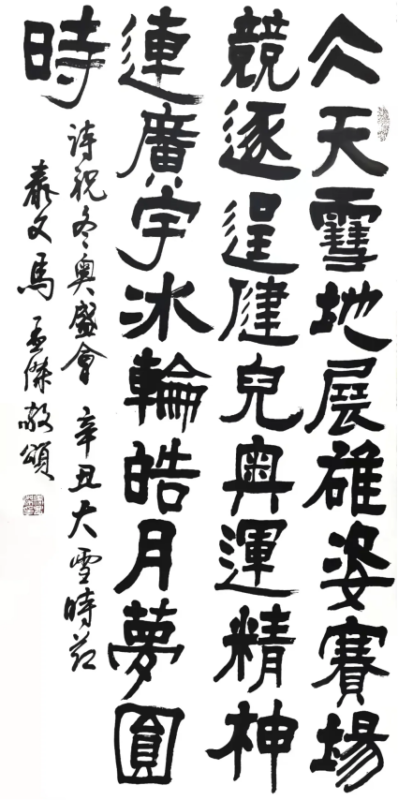 仌天雪地展雄姿賽場
競逐逞健兒奧運精神
連廣宇冰輪皓月夢圓
時
詩祝冬奧盛會 辛丑大雪時節
文馬孟傑敬頌